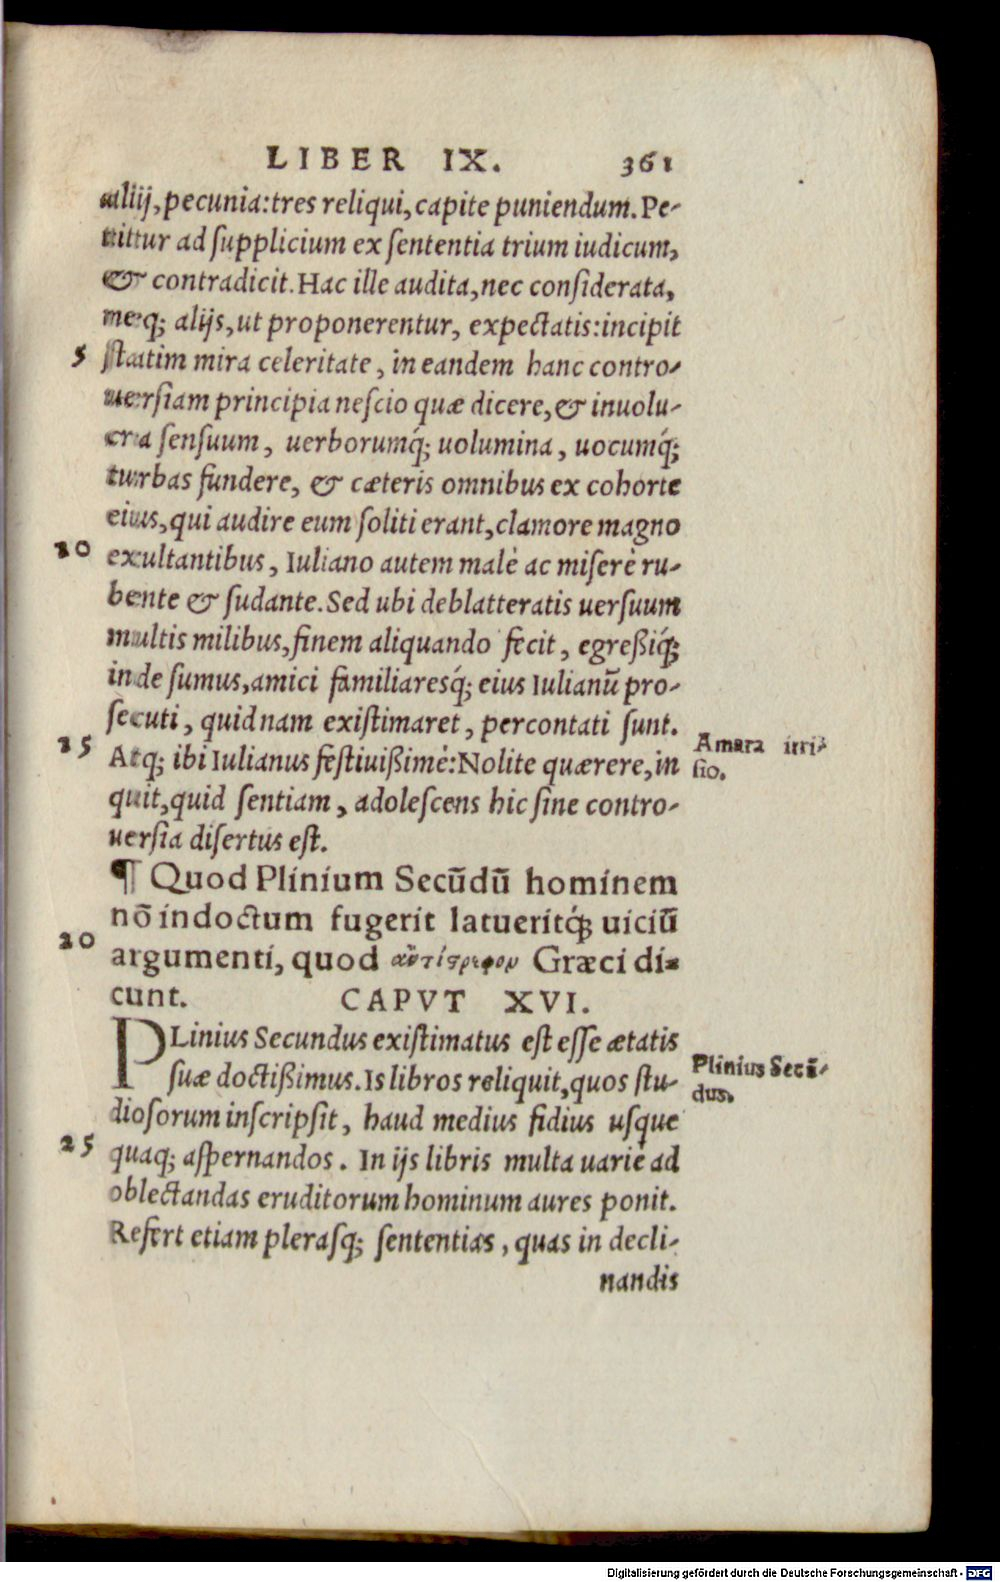 LIBER IX. 361
alij, pecunia: tres reliqui, capite puniendum. Pe-
titur ad supplicium ex sententia trium iudicum,
& contradicit. Hac ille audita, nec considerata,
neq; alijs, ut proponerentur, expectatis: incipit
5 statim mira celeritate, in eandem hanc contro-
uersiam principia nescio quæ dicere, & inuolu-
cra sensuum, uerborumq́; uolumina, uocumq́;
turbas fundere, & cæteris omnibus ex cohorte
eius, qui audire eum soliti erant, clamore magno
10 exultantibus, Iuliano autem malè ac miserè ru-
bente & sudante. Sed ubi deblatteratis uersuum
multis milibus, finem aliquando fecit, egreßiq́;
inde sumus, amici familiaresq́; eius Iulianũ pro-
secuti, quidnam existimaret, percontati sunt.
15 Atq; ibi Iulianus festiuißimè: Nolite quærere, in
quit, quid sentiam, adolescens hic sine contro-
uersia disertus est.
Amara irri-
sio.
¶ Quod Plinium Secũdũ hominem
nõ indoctum fugerit latueritq́; uiciũ
20 argumenti, quod ἀντίστρεφον Græci di-
cunt. CAPVT XVI.
PLinius Secundus existimatus est esse ætatis
suæ doctißimus. Is libros reliquit, quos stu-
diosorum inscripsit, haud medius fidius usque
25 quaq; aspernandos. In ijs libris multa uarie ad
oblectandas eruditorum hominum aures ponit.
Refert etiam plerasq; sententias, quas in decli-
nandis
Plinius Secũ-
dus.
Digitalisierung gefördert durch die Deutsche Forschungsgemeinschaft - DFG